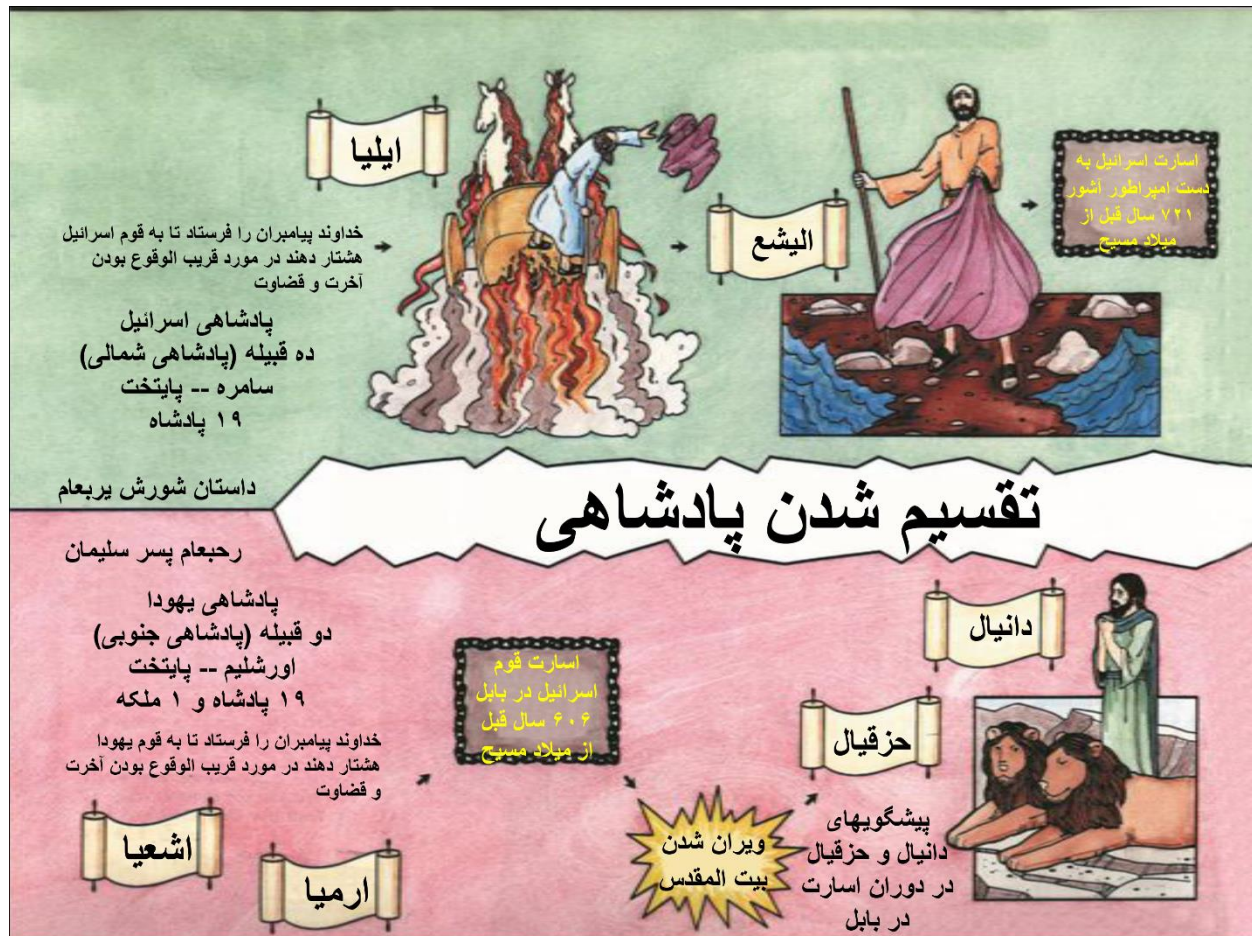 ایلیا
خداوند پیامبران را فرستاد تا به قوم اسرائیل
هشتار دهند در مورد قریب الوقوع بودن
آخرت و قضاوت
پادشاهی اسرائیل
ده قبیله (پادشاهی شمالی)
سامره -- پایتخت
۱۹ پادشاه
الیشع
اسارت اسرائیل به
دست امپراطور آشور
۷۲۱ سال قبل از
میلاد مسیح
داستان شورش یربعام
تقسیم شدن پادشاهی
رحبعام پسر سلیمان
پادشاهی یهودا
دو قبیله (پادشاهی جنوبی)
اورشلیم -- پایتخت
۱۹ پادشاه و ۱ ملکه
خداوند پیامبران را فرستاد تا به قوم یهودا
هشتار دهند در مورد قریب الوقوع بودن آخرت
و قضاوت
اشعیا
ارمیا
اسارت قوم
اسرائیل در بابل
۶۰۶ سال قبل
از میلاد مسیح
ویران شدن
بیت المقدس
دانیال
حزقیال
پیشگویهای
دانیال و حزقیال
در دوران اسارت
در بابل